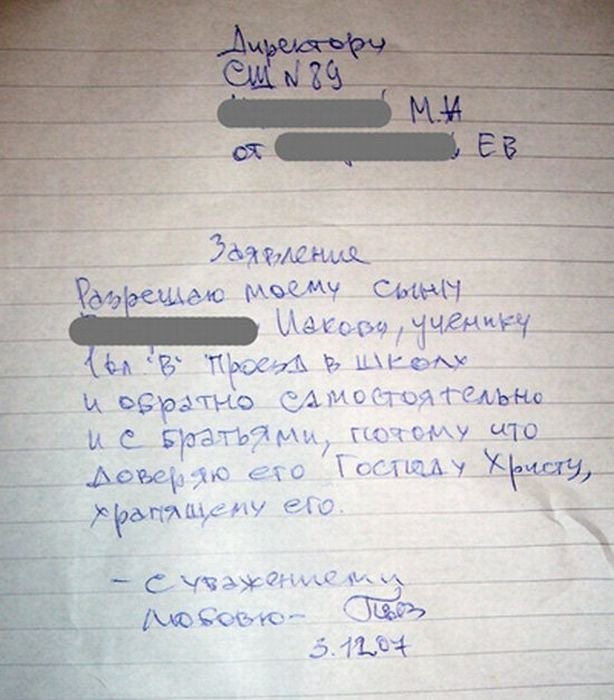 Директору
СШ N 89
М.И
от ЕВ
Заявление
Разрешаю моему сыну
Иакову, ученику
1кл "В" проезд в школу
и обратно самостоятельно
и с братьями, потому что
доверяю его Господу Христу,
хранящему его.
- с уважением и
любовью-
3.12.07